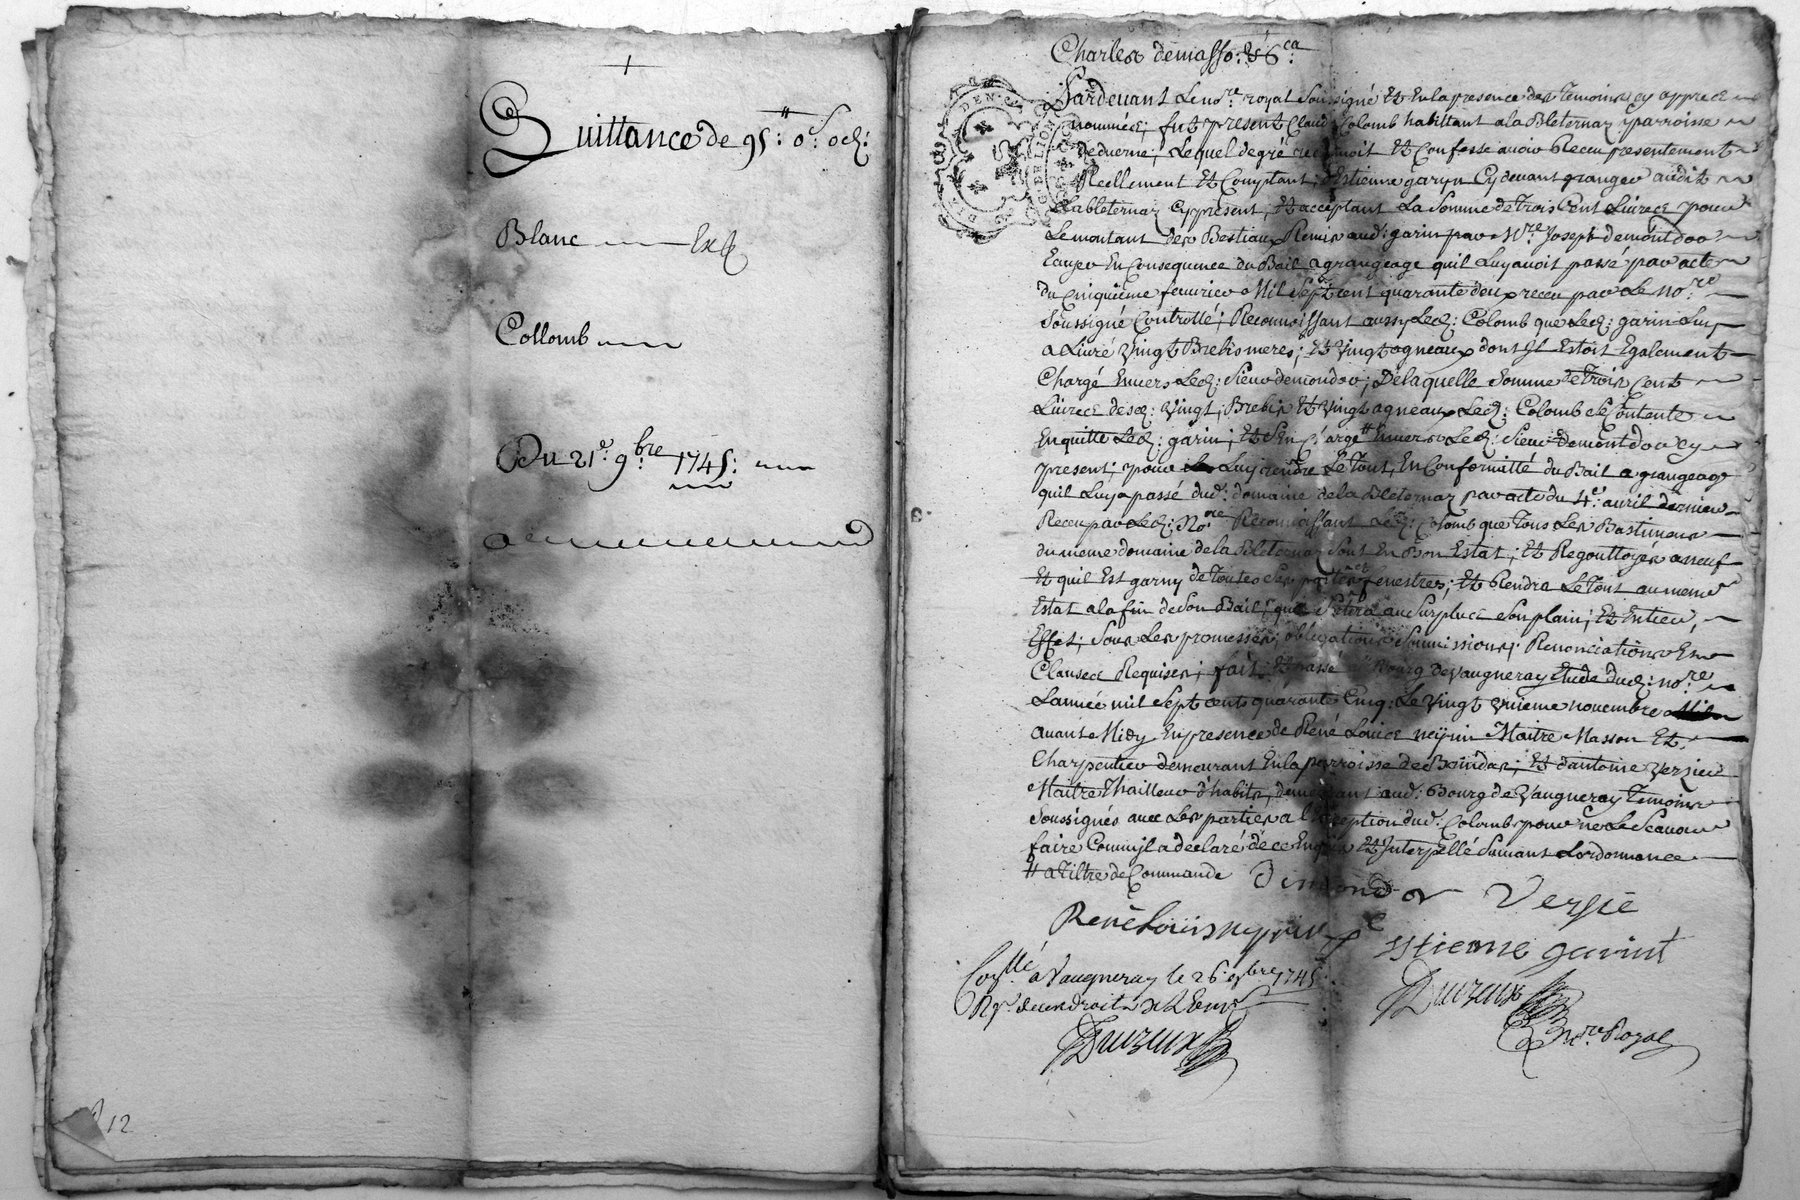 Quittance de 95:ᵗᵗ 0:ˢ 0d:
Blanc Ex
Collomb
Du 21ᵉ: 9:ᵇʳᵉ 1745:
12
Charles demasso:
GEN
LION
Pardevant Le noʳᵉ royal Soussigné Et En la presence des temoins cy appres
nommées; fut present Claude Colomb habittant a la Bleternay parroisse
deduerne; Lequel de gré reconnoit Et Confesse avoir Receu presentement
Reellement Et Comptant, d'Estienne garyn Cy devant granger audit
La bleternay cy present, Et acceptant La Somme de trois Cent Livres pour
Le montant des Bestiaux Remis aud: garin par Mʳᵉ Joseph demontdor
Ecuyer En Consequence du Bail a grangeage quil Luy avoit passé par acte
du Cinquieme fevrier Mil Sept cent quarante deux receu par Le noʳᵉ
Soussigné Controllé; Reconnoissant aussy Led: Colomb que Led: garin Luy
a Livré vingt Brebis meres, Et vingt agneaux dont Il Estoit Egalement
Chargé Envers Led: Sieur demondor; De laquelle Somme de trois Cent
Livres desd: vingt Brebis Et vingt agneaux Led: Colomb Se Contente
En quitte Led: garin; Et S'En Charge ᵗᵗ Envers Led: Sieur Demontdor cy
present; pour Luy rendre Le tout, En Conformitté du Bail a grangeage
quil Luy a passé dud: domaine de la Bleternay par acte du 4ᵉ: avril dernier
Receu par Led: Noʳᵉ Reconnoissant Led: Colomb que tous Les Bastimens
du meme domaine de la Bleternay Sont En Bon Estat; Et Regouttoyés a neuf
Et quil Est garny de toutes Ses portes Et fenestres; Et Rendra Le tout au meme
Estat a la fin de Son Bail; qui au Surplus Son plain; Et Entier,
Effet; Sous Les promesses, obligations Soumissions; Renonciations Et
Clauses Requises; fait Et passé au Bourg de Vaugneray Etude dud: noʳᵉ
L'année mil Sept cents quarante Cinq: Le vingt unieme novembre
avant Midy En presence de René Louis Maitre Masson Et
Charpentier demeurant En la parroisse de Brindas; Et d'antoine Versieu
Maitre thailleur d'habits, demeurant aud: Bourg de Vaugneray temoins
Soussignés avec Les parties a L'exception dud: Colomb pour ne Le Scavoir
faire Comm'jl a declaré de ce Enquis Et Interpellé Suivant L'ordonnance
ᵗᵗ a Tiltre de Commande
Demondor Versie
René Louis
Estienne garint
Conᵗˡˡᵉ a Vaugneray le 26: 9ᵇʳᵉ 1745:
Duvieux
Duvieux
Nʳᵉ Royal